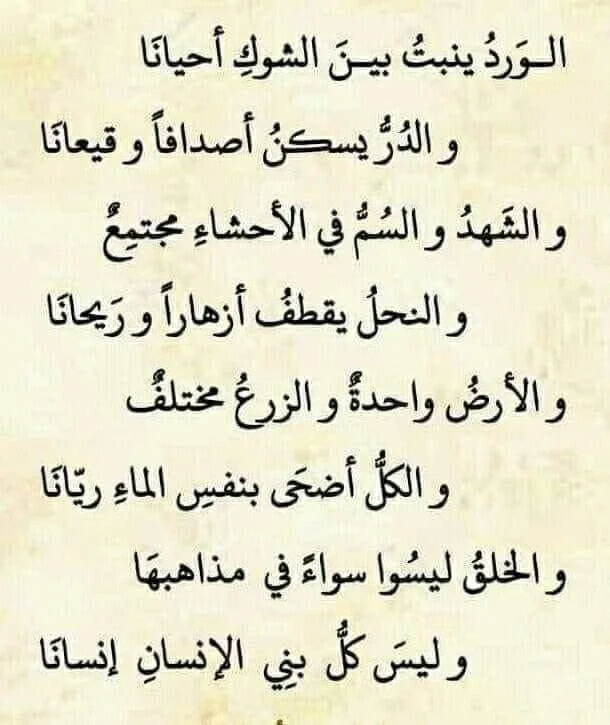 الـوَردُ ينبتُ بيـنَ الشوكِ أحيانَا
و الدُرُّ يسكنُ أصدافاً و قيعانَا
و الشَهدُ و السُمُّ في الأحشاءِ مجتمِعٌ
و النحلُ يقطفُ أزهاراً و رَيحانَا
و الأرضُ واحدةٌ و الزرعُ مختلفٌ
و الكلُّ أضحَى بنفسِ الماءِ ريّانَا
و الخلقُ ليسُوا سواءً في مذاهبهَا
و ليسَ كلُّ بنِي الإنسانِ إنسانَا